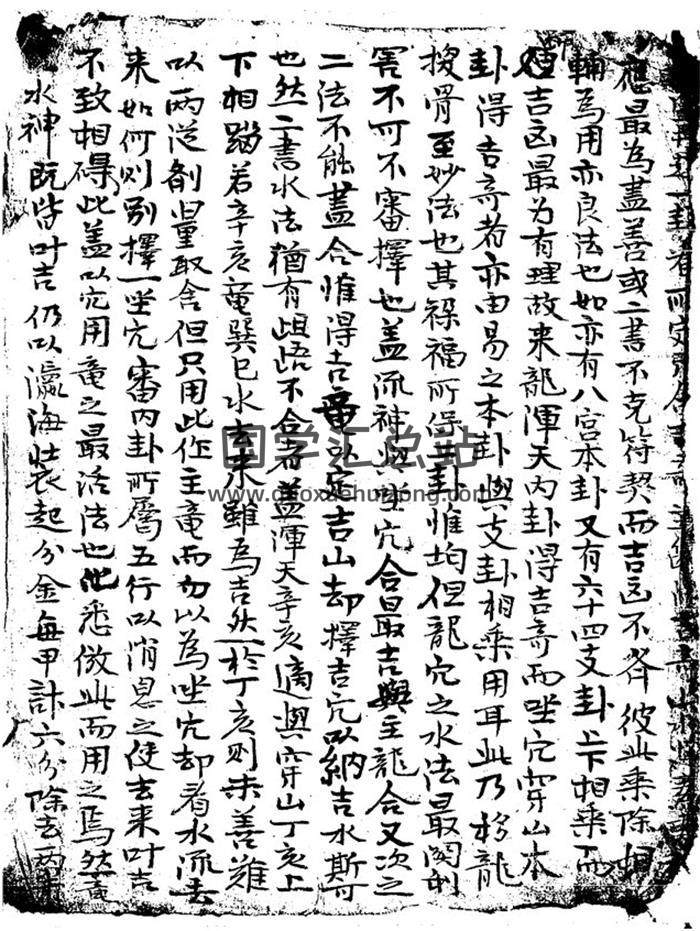 應最為盖善或二書不克符契而吉凶不齐彼此乘除相
輔為用亦良法也如亦有八宫本卦又有六十四支卦上下相乘而
吉凶最为有理故来龍渾天内卦得吉奇而坐穴穿山本
卦得吉奇者亦由易之本卦與支卦相乘用耳此乃移龍
換骨至妙法也其禄福所得卦惟均但龍穴之水法最関利
害不可不審擇也盖流神坐穴合最吉與主龍合又次之
二法不能盖合惟得吉竜以定吉山却擇吉穴以納吉水斯可
也然二書水法猶有齟齬不合者盖渾天辛亥適與穿山丁亥上
下相蹋若辛亥竜巽巳水去来雖為吉然於丁亥則未善难
以両从剤量取舍但只用此作主竜而勿以為坐穴却看水流去
来如何则别擇一坐穴審内卦所屬五行以消息之使去来叶吉
不致相碍此盖以穴用竜之最活法也他悉倣此而用之焉然竜
水神既皆叶吉仍以瀛海裝起分金每甲計六分除去両
国学汇总站
www.guoxuehuizong.com